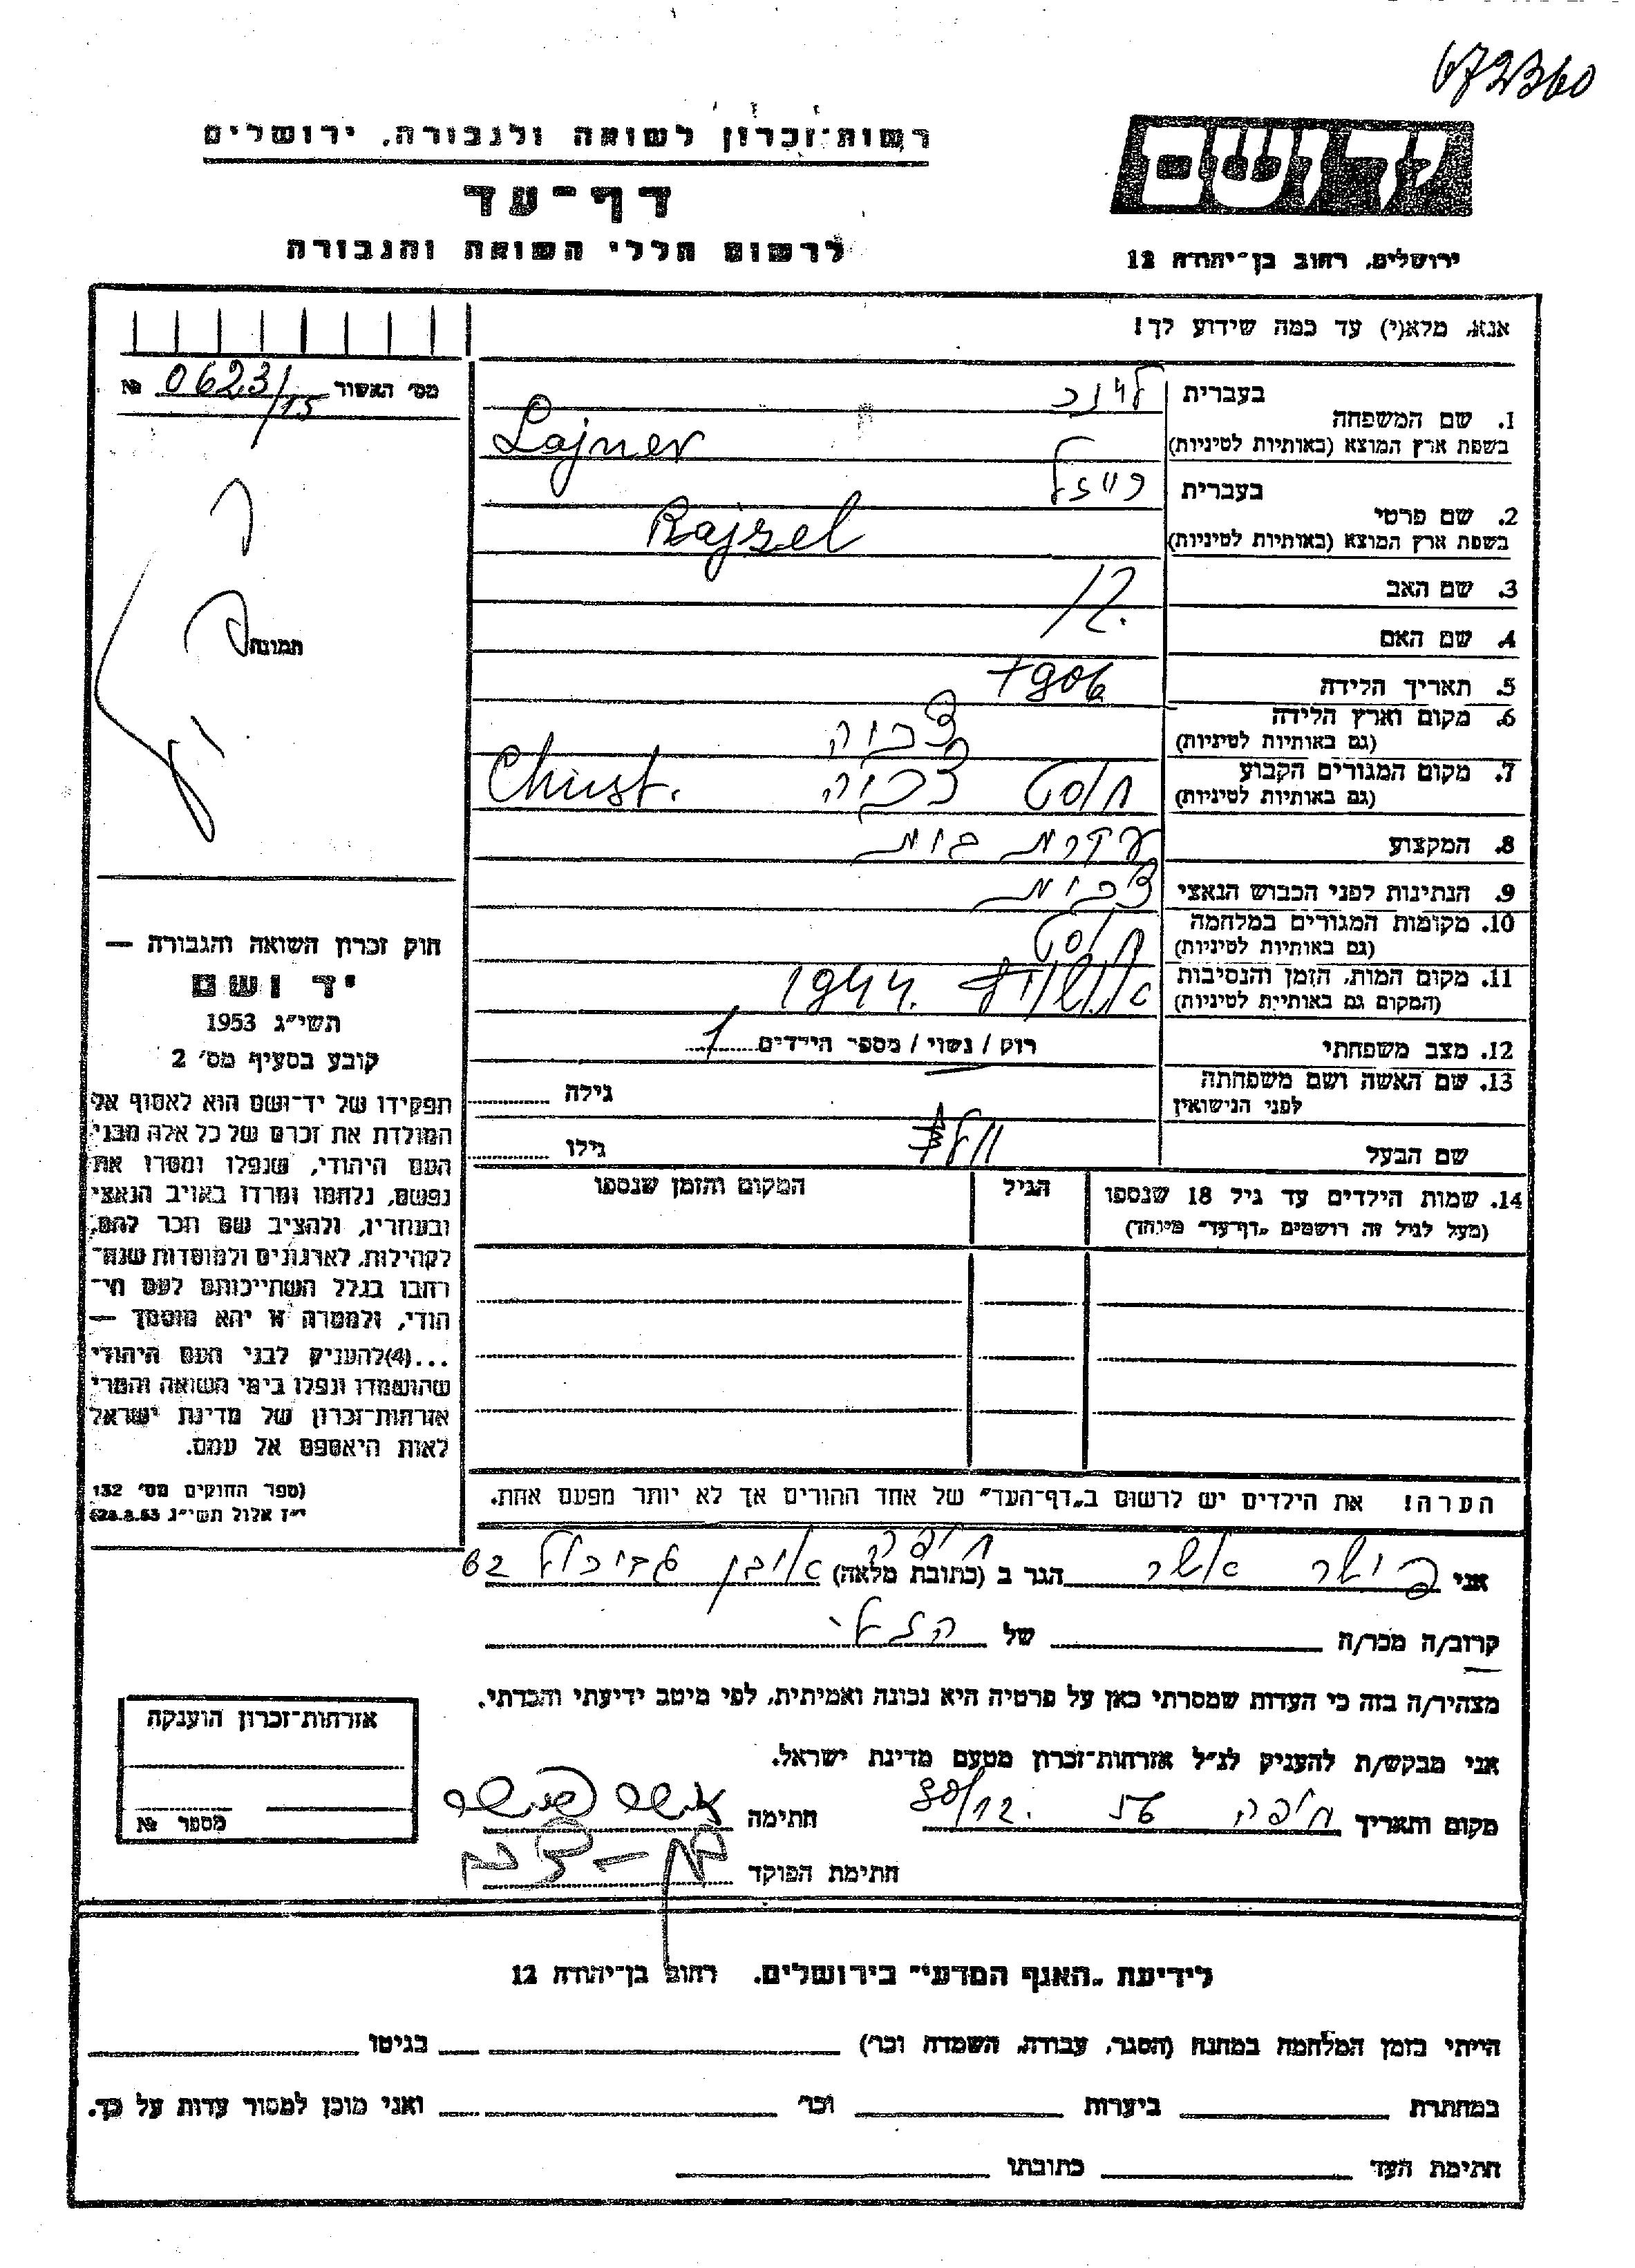 672360
רשות־זכרון לשואה ולגבורה, ירושלים
דף־עד
לרשום חללי השואה והגבורה
יד ושם
ירושלים, רחוב בן־יהודה 12
אנא, מלא(י) עד כמה שידוע לך!
מס' האשור 0623/15 №
תמונה
1. שם המשפחה
בעברית
בשפת ארץ המוצא (באותיות לטיניות) Lajner
2. שם פרטי
בעברית רייזל
בשפת ארץ המוצא (באותיות לטיניות) Rajzel
3. שם האב
4. שם האם
5. תאריך הלידה 1906
6. מקום וארץ הלידה צכיה
(גם באותיות לטיניות)
7. מקום המגורים הקבוע חוסט צכיה Chust.
(גם באותיות לטיניות)
8. המקצוע עקרת בית
9. הנתינות לפני הכבוש הנאצי צכית
10. מקומות המגורים במלחמה חוסט
(גם באותיות לטיניות)
11. מקום המות, הזמן והנסיבות אושויץ 1944.
(המקום גם באותיות לטיניות)
12. מצב משפחתי רוק / נשוי / מספר הילדים 1
13. שם האשה ושם משפחתה גילה
לפני הנישואין
שם הבעל גילו
14. שמות הילדים עד גיל 18 שנספו הגיל המקום והזמן שנספו
(מעל לגיל זה רושמים "דף־עד" מיוחד)
הערה! את הילדים יש לרשום ב"דף־העד" של אחד ההורים אך לא יותר מפעם אחת.
חוק זכרון השואה והגבורה —
יד ושם
תשי"ג 1953
קובע בסעיף מס' 2
תפקידו של יד־ושם הוא לאסוף אל
המולדת את זכרם של כל אלה מבני
העם היהודי, שנפלו ומסרו את
נפשם, נלחמו ומרדו באויב הנאצי
ובעוזריו, ולהציב שם וזכר להם,
לקהילות, לארגונים ולמוסדות שנח־
רבו בגלל השתייכותם לעם הי־
הודי, ולמטרה זו יהא מוסמך —
...(4)להעניק לבני העם היהודי
שהושמדו ונפלו בימי השואה והמרי
אזרחות־זכרון של מדינת ישראל
לאות היאספם אל עמם.
(ספר החוקים מס' 132
י"ז אלול תשי"ג 28.8.53)
אני פישר אשר הגר ב (כתובת מלאה) חיפה אבן גבירול 62
קרוב/ה מכר/ה של
מצהיר/ה בזה כי העדות שמסרתי כאן על פרטיה היא נכונה ואמיתית, לפי מיטב ידיעתי והכרתי.
אני מבקש/ת להעניק לנ"ל אזרחות־זכרון מטעם מדינת ישראל.
מקום ותאריך חיפה 30/12. חתימה אשר פישר
חתימת הפוקד
אזרחות־זכרון הוענקה
מספר №
לידיעת "האגף המדעי" בירושלים, רחוב בן־יהודה 12
הייתי בזמן המלחמה במחנה (הסגר, עבודה, השמדה וכו') בגיטו
במחתרת ביערות וכו' ואני מוכן למסור עדות על כך.
חתימת העד כתובתו